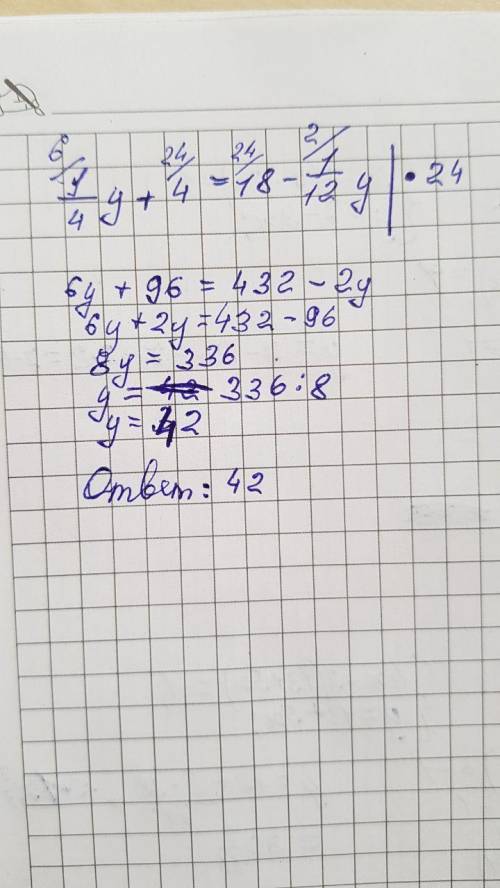 6/ 24/ 24/ 2/
1/4 y + 4 = 18 - 1/12 y | • 24
6y + 96 = 432 - 2y
6y + 2y = 432 - 96
8y = 336
y = 42 336 : 8
y = 42
Ответ: 42